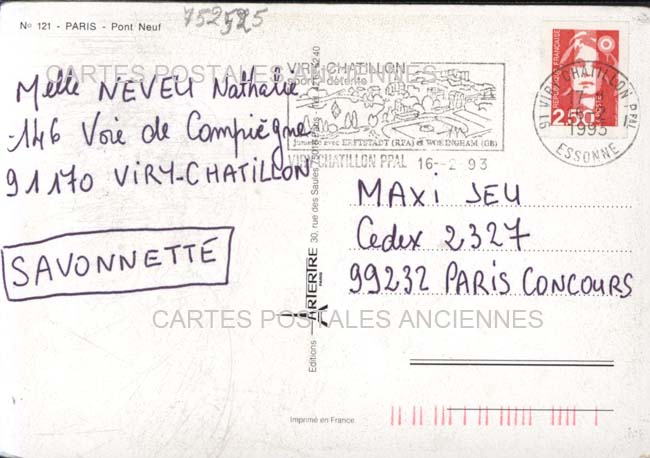 N° 121 - PARIS - Pont Neuf
752525
CARTES POSTALES ANCIENNES
Melle NEVEU Nathalie
146 Voie de Compiègne
91170 VIRY-CHATILLON
SAVONNETTE
VIRY-CHATILLON
sports détente
jumelé avec ERFTSTADT (RFA) et WOKINGHAM (GB)
VIRY CHATILLON PPAL 16--2-93
RÉPUBLIQUE FRANÇAISE
2,50
POSTE
91 VIRY CHATILLON PPAL
1993
ESSONNE
MAXI JEU
Cedex 2327
99232 PARIS CONCOURS
CARTES POSTALES ANCIENNES
Editions ARTERTRE 30, rue des Saules 75018 Paris
Imprimé en France